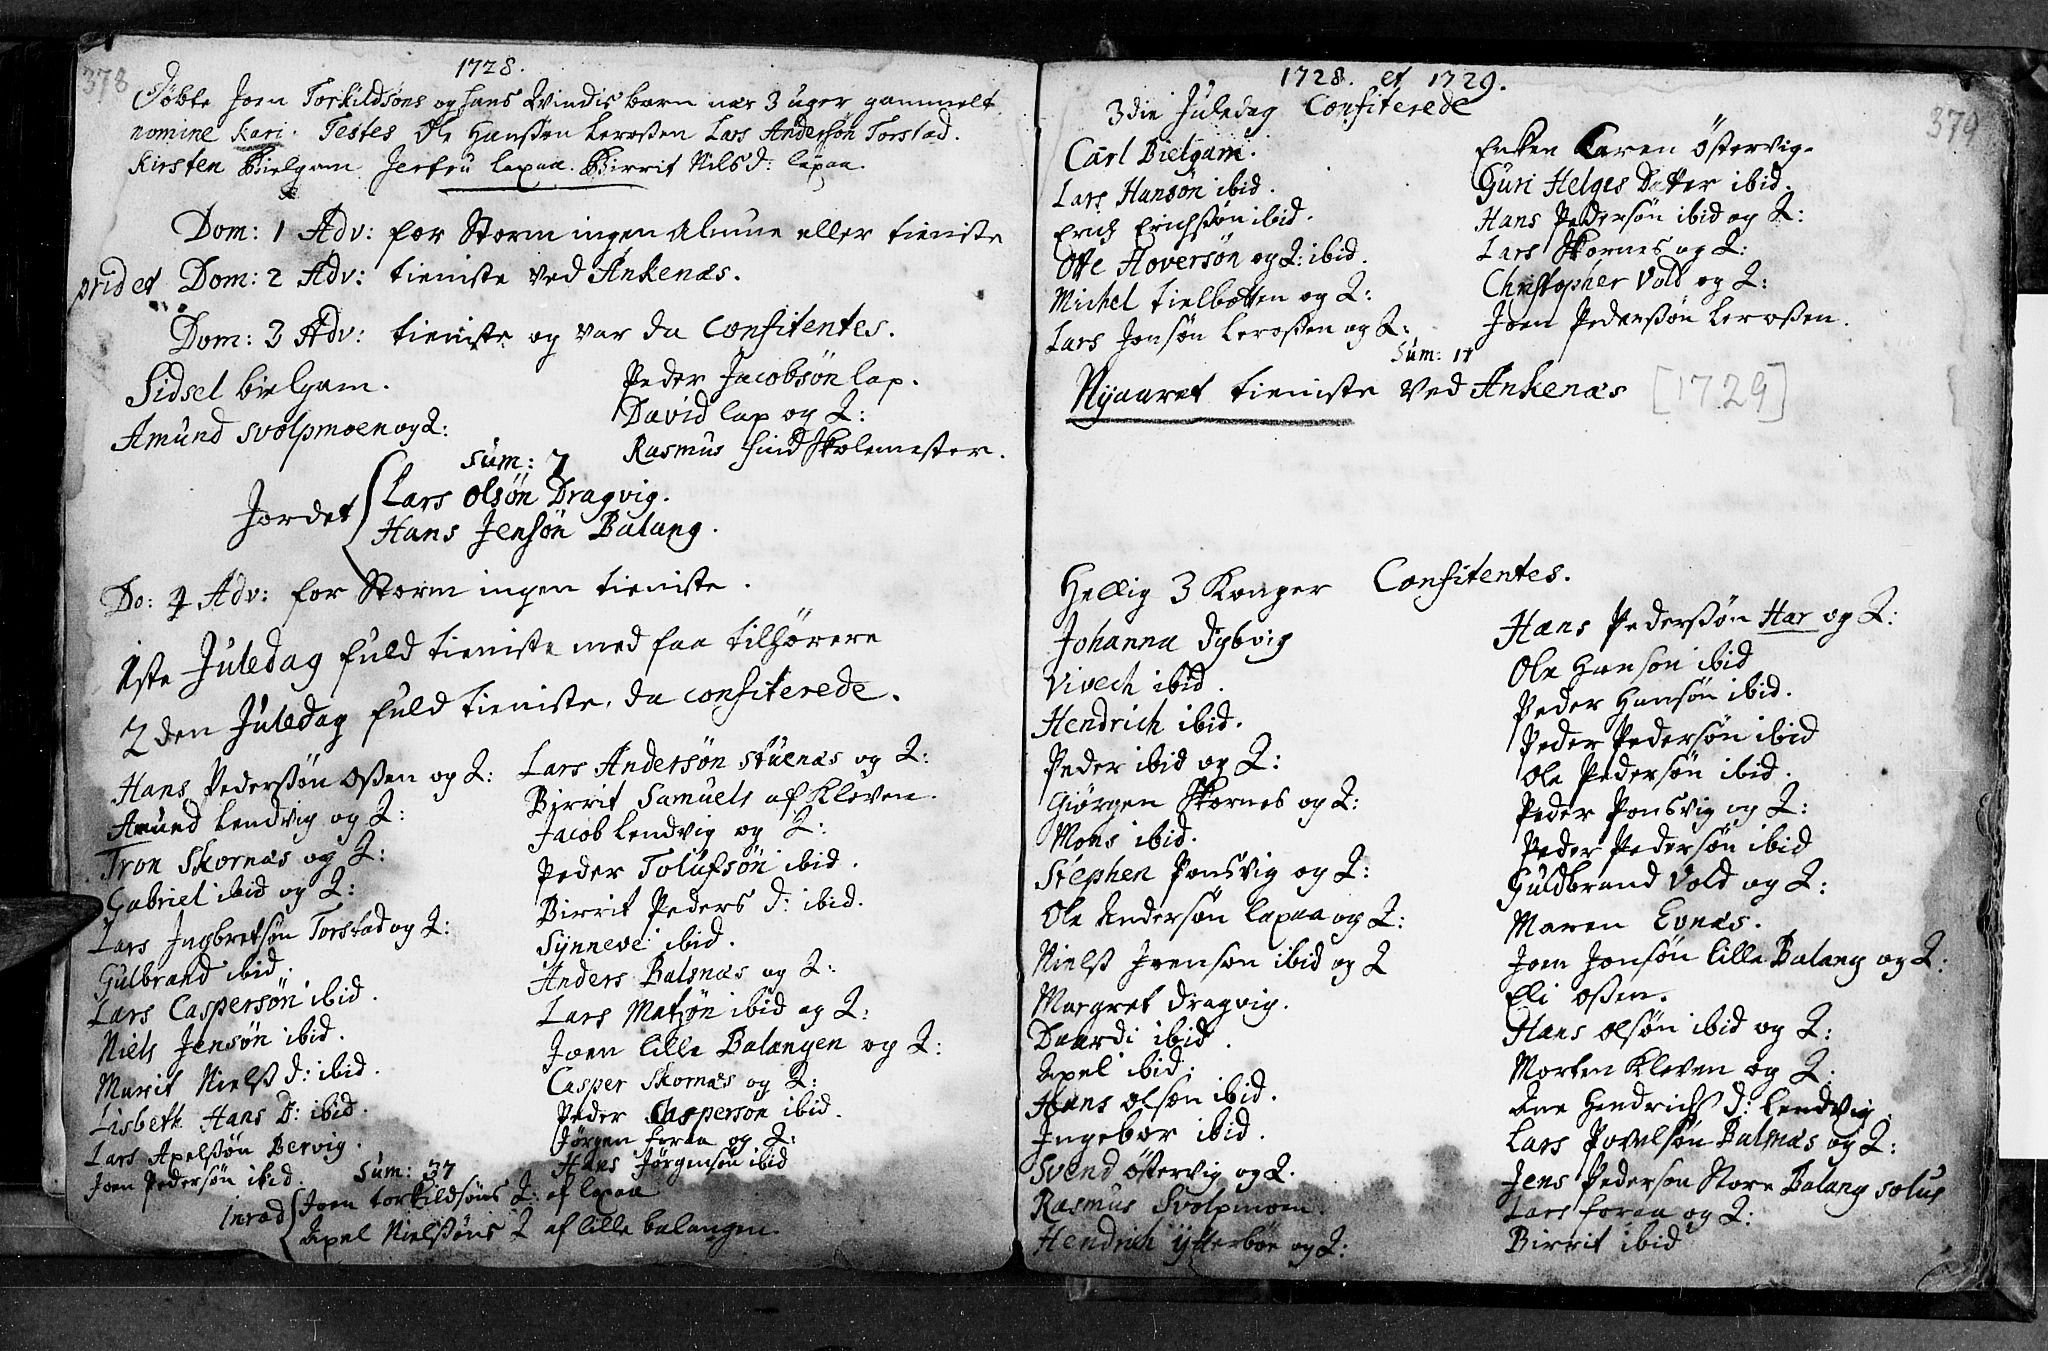 378
1728.
Döbte Joen Torkildsöns og hans Qvindis barn nær 3 uger gammelt
nomine Kari. Testes Ole Hanssen Lerossen Lars Andersön Torstad.
Kirsten Bielgam Jertru Laxaa. Birrit Nils D: laxaa.
Dom: 1 Adv: for Storm ingen Almue eller tieniste
prid et Dom: 2 Adv: tieniste ved Ankenæs.
Dom: 3 Adv: tieniste og var da Confitentes.
Sidsel bielgam.
Amund Svolpmoen og Q:
Peder Jacobsön lap.
David lap og Q:
Rasmus Hind Skolemester.
Sum: 7
Jordet { Lars Olsön Dragvig.
Hans Jensön Balang.
Do: 4 Adv: for Storm ingen tieniste.
1ste Juledag fuld tieniste med faa tilhörere
2den Juledag fuld tieniste, da confiterede.
Hans Pederssön Ossen og Q:
Amund Lendvig og Q:
Tron Skornæs og Q:
Gabriel ibid og Q:
Lars Ingbretsön Torstad og Q:
Gulbrand ibid.
Lars Caspersön ibid.
Niels Jensön ibid.
Marit Nielss D: ibid.
Lisbeth Hans D: ibid.
Lars Axelssön Bervig.
Joen Pedersön ibid.
Lars Andersön Stuenæs og Q:
Birrit Samuels af Kleven.
Jacob Lendvig og Q:
Peder Tolufsön ibid.
Birrit Peders D: ibid.
Synneve ibid.
Anders Balsnæs og Q:
Lars Matsön ibid og Q:
Joen lille Balangen og Q:
Casper Skornæs og Q:
Peder Casperson ibid.
Jörgen foraa og Q:
Hans Jörgensön ibid
Sum: 37
Inrod { Joen torkildsöns Q: af laxaa
Axel Nielssöns Q af lille balangen.
379
1728. et 1729.
3die Juledag Confiterede
Carl Bielgam.
Lars Hansön ibid.
Erich Erichssön ibid.
Otte Hoversön og Q: ibid.
Michel tielbotten og Q:
Lars Jonsön Lerossen og Q:
Enken Karen Östervig.
Guri Helges Datter ibid.
Hans Pedersön ibid og Q:
Lars Skornes og Q:
Christopher Vold og Q:
Joen Pederssön Lerossen.
Sum: 17
Nyaaret tieniste ved Ankenæs [1729]
Hellig 3 Konger Confitentes.
Johanna Dybvig
Vivech ibid.
Hendrich ibid.
Peder ibid og Q:
Giörgen Skornes og Q:
Mons ibid.
Stephen Ponsvig og Q:
Ole Andersön laxaa og Q:
Nielss Ivenson ibid og Q
Margret Dragvig.
Daardi ibid.
Axel ibid.
Hans olson ibid.
Ingebor ibid.
Svend östervig og Q.
Rasmus Svolpmoen.
Hendrich ytterboe og Q:
Hans Pederssön Har og Q:
Ole Hanson ibid
Peder Hansön ibid.
Peder Pedersön ibid
Ole Pedersön ibid.
Peder Ponsvig og Q:
Peder Pedersön ibid
Guldbrand Vold og Q:
Maren Evnæs.
Joen Jonsön lille Balang og Q:
Eli ossen.
Hans olsön ibid og Q:
Morten Kleven og Q.
Ane Hendrichs D: Lendvig.
Lars Povelsön Balsnæs og Q:
Jens Pederson Store Balang solus
Lars foraa og Q:
Birrit ibid